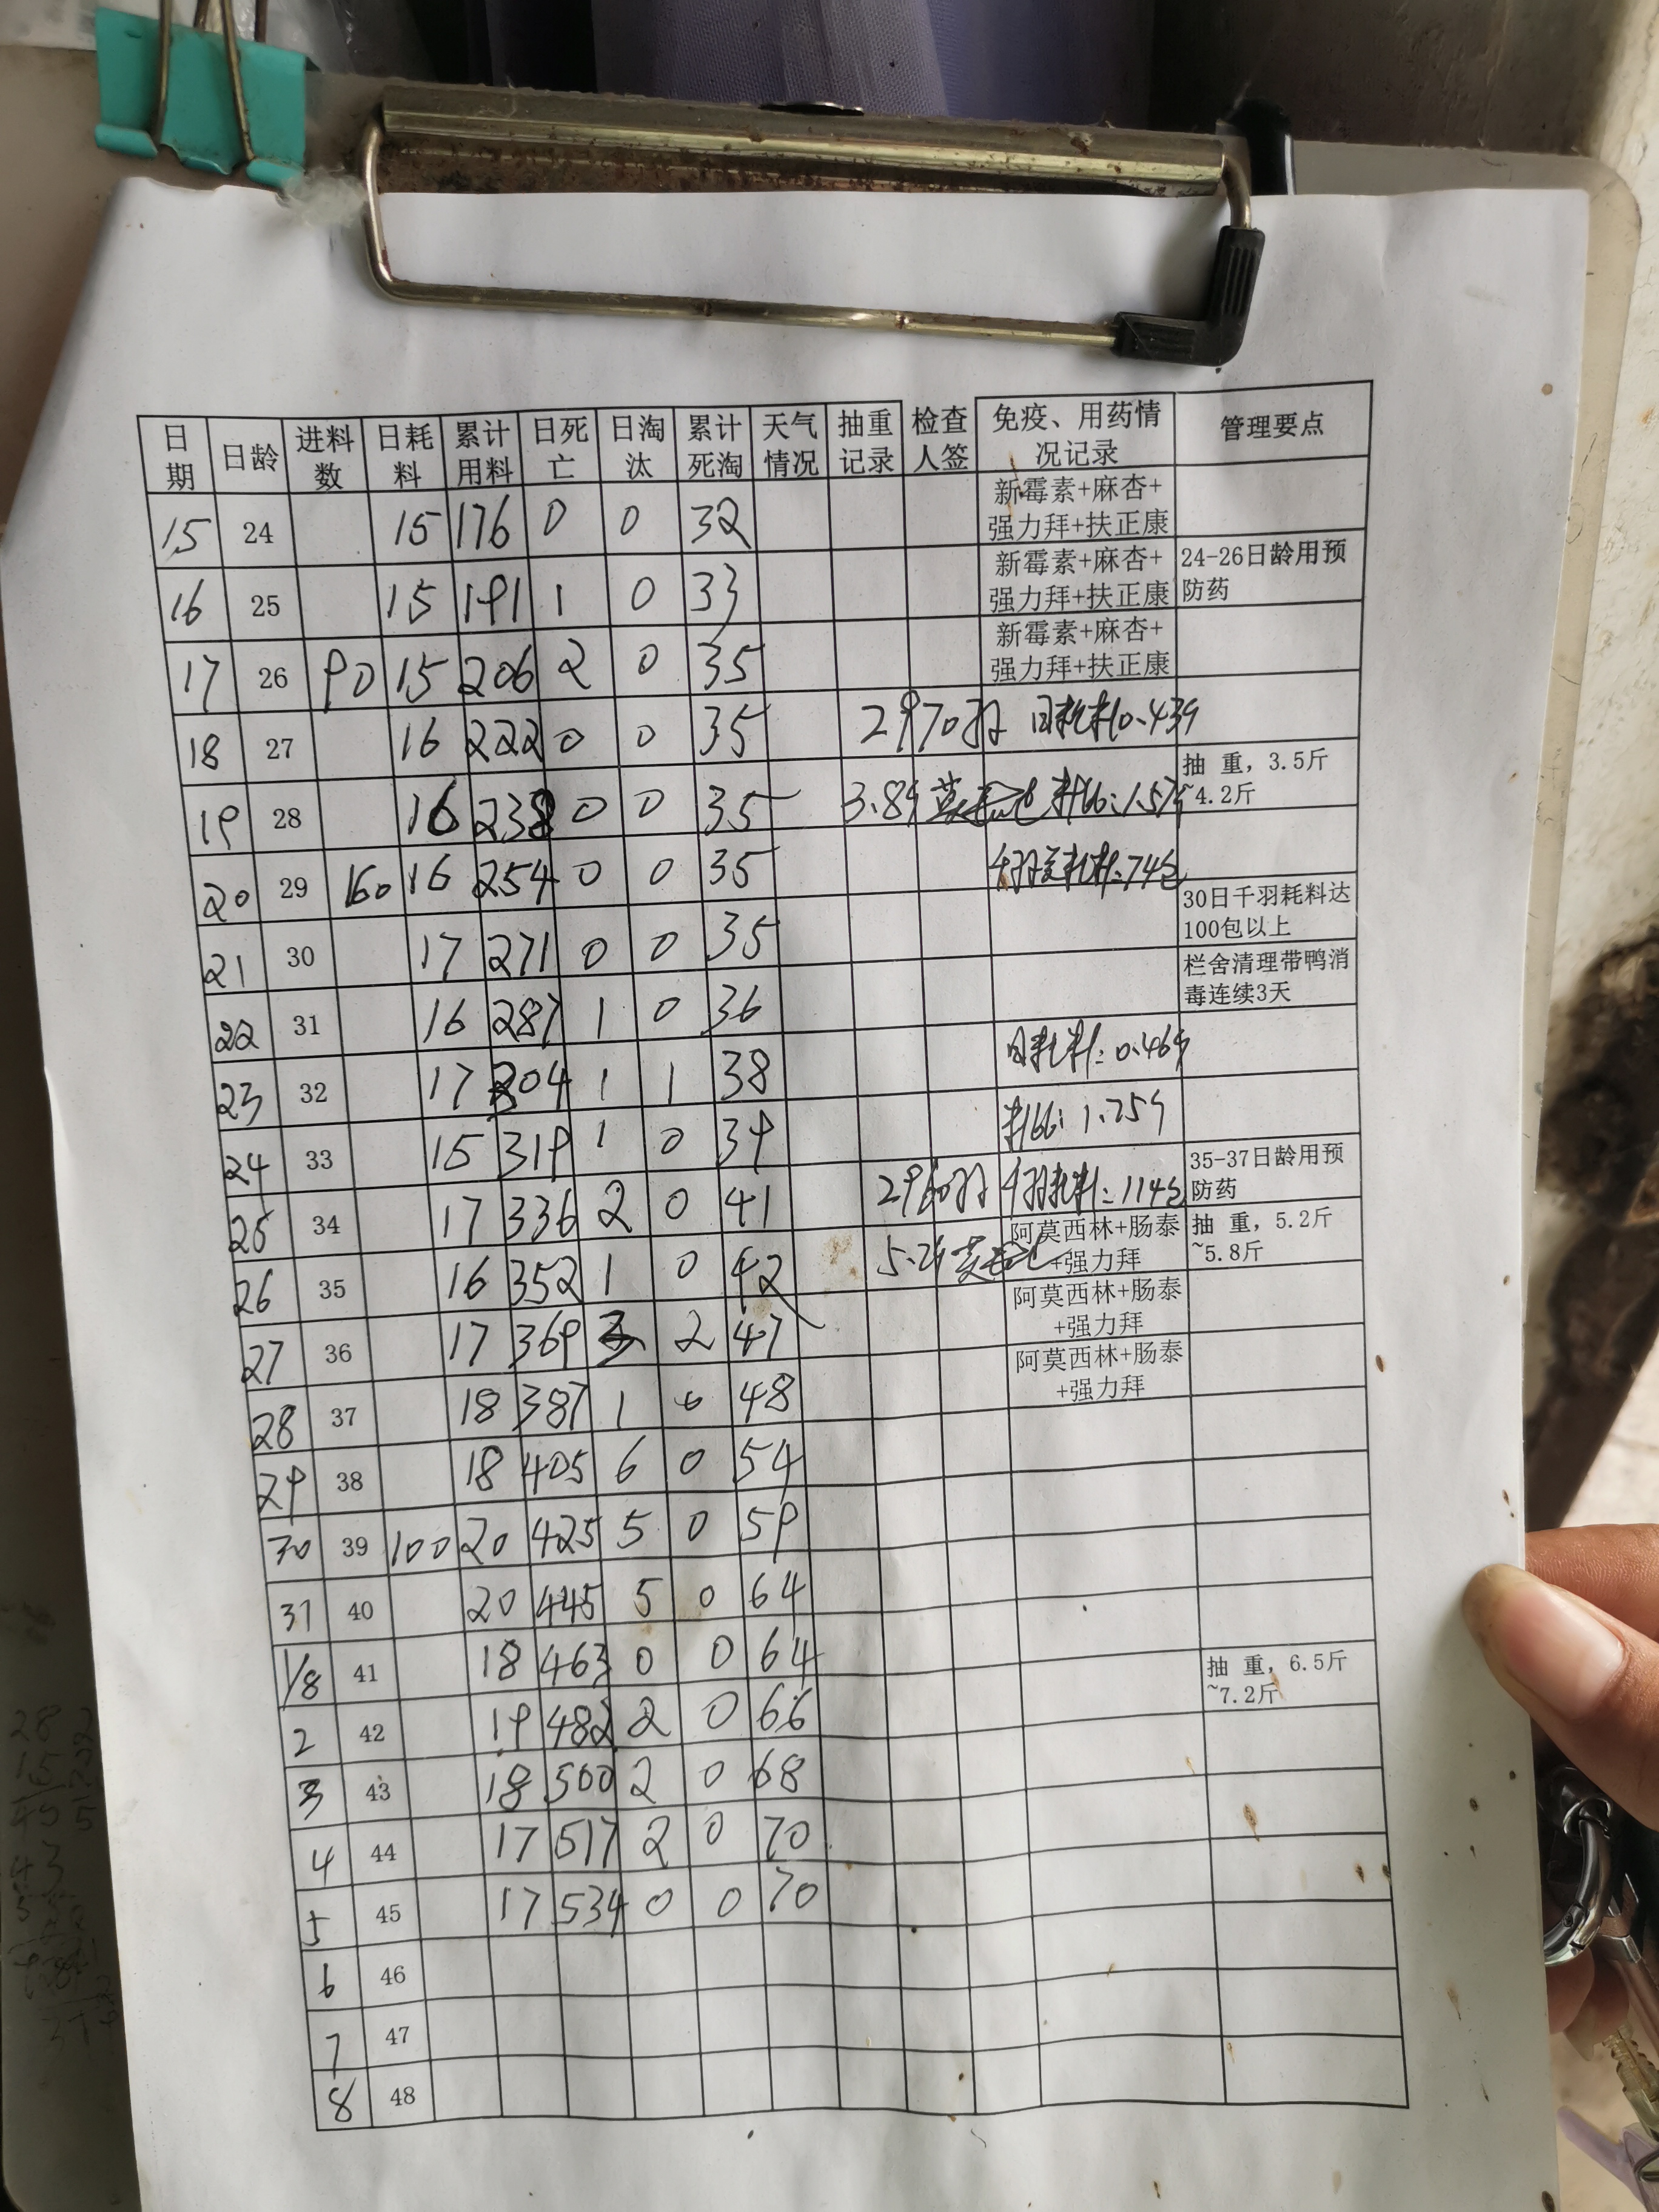 日期 日龄 进料数 日耗料 累计用料 日死亡 日淘汰 累计死淘 天气情况 抽重记录 检查人签 免疫、用药情况记录 管理要点
15 24 15 176 0 0 32 新霉素+麻杏+强力拜+扶正康
16 25 15 191 1 0 33 新霉素+麻杏+强力拜+扶正康 24-26日龄用预防药
17 26 90 15 206 2 0 35 新霉素+麻杏+强力拜+扶正康
18 27 16 222 0 0 35 2970羽 日耗料0.43斤
19 28 16 238 0 0 35 3.8斤 料比:1.57 抽 重，3.5斤~4.2斤
20 29 160 16 254 0 0 35 千羽 耗料:74包
21 30 17 271 0 0 35 30日千羽耗料达100包以上
22 31 16 287 1 0 36 栏舍清理带鸭消毒连续3天
23 32 17 304 1 1 38 日耗料:0.46斤
24 33 15 319 1 0 39 料比:1.75斤
25 34 17 336 2 0 41 2960羽 千羽耗料:114包 35-37日龄用预防药
26 35 16 352 1 0 42 5.2斤 阿莫西林+肠泰+强力拜 抽 重，5.2斤~5.8斤
27 36 17 369 3 2 47 阿莫西林+肠泰+强力拜
28 37 18 387 1 0 48 阿莫西林+肠泰+强力拜
29 38 18 405 6 0 54
30 39 100 20 425 5 0 59
31 40 20 445 5 0 64
1/8 41 18 463 0 0 64
2 42 19 482 2 0 66 抽 重，6.5斤~7.2斤
3 43 18 500 2 0 68
4 44 17 517 2 0 70
5 45 17 534 0 0 70
6 46
7 47
8 48